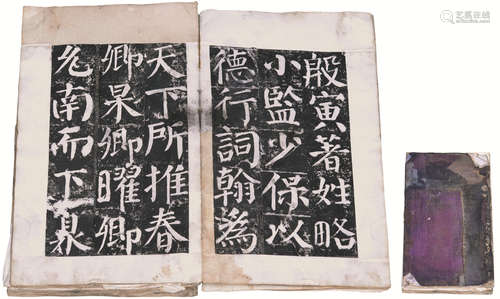 殷寅著姓略
小監少保以
德行詞翰為
天下所推春
卿杲卿曜卿
允南而下杲